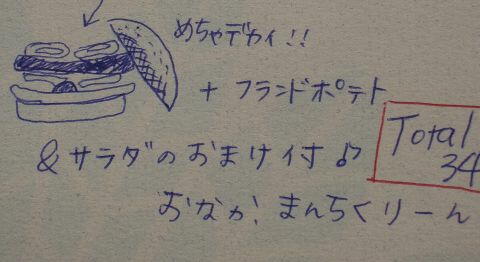 めちゃデカイ!!
+ フランドポテト
&サラダのおまけ付♪
Total
34
おなか、まんちくりーん